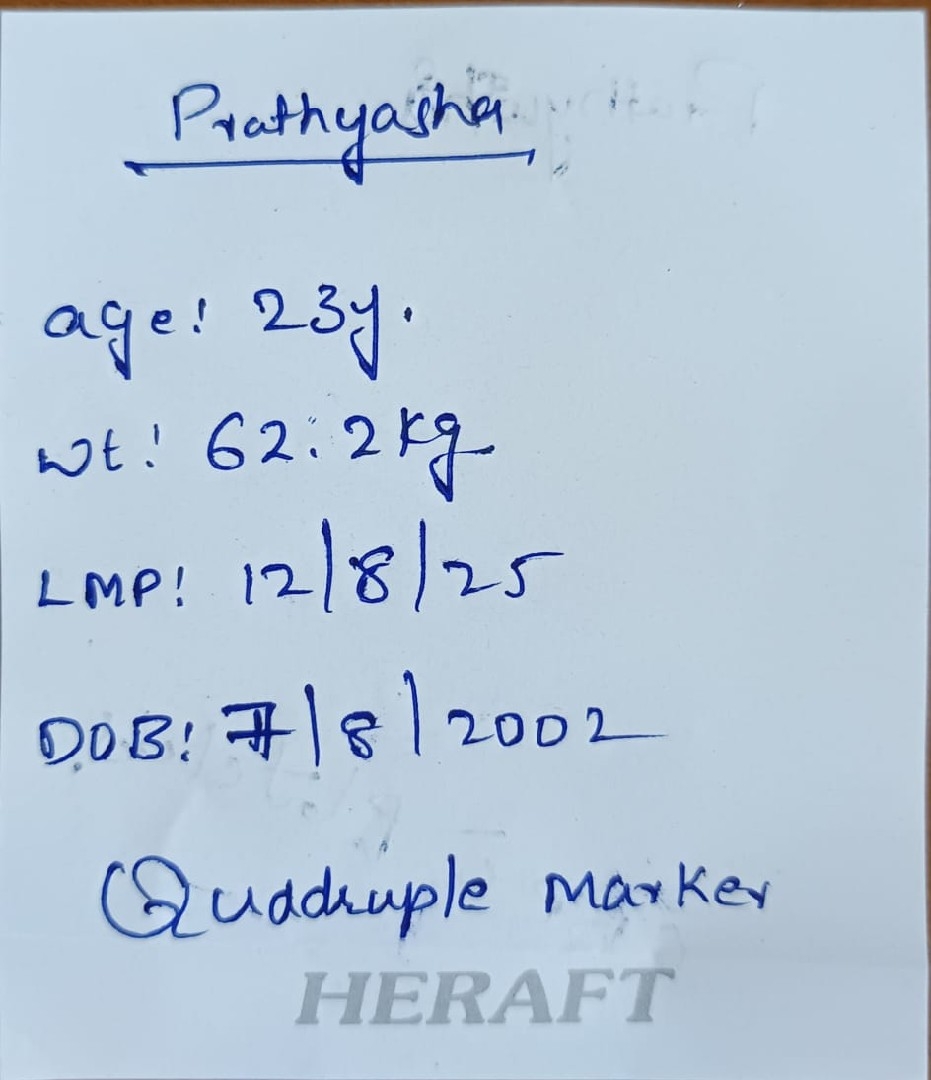 Prathyasha
age: 23y.
wt: 62.2kg
LMP: 12/8/25
DOB: 7/8/2002
Quadruple Marker
HERAFT